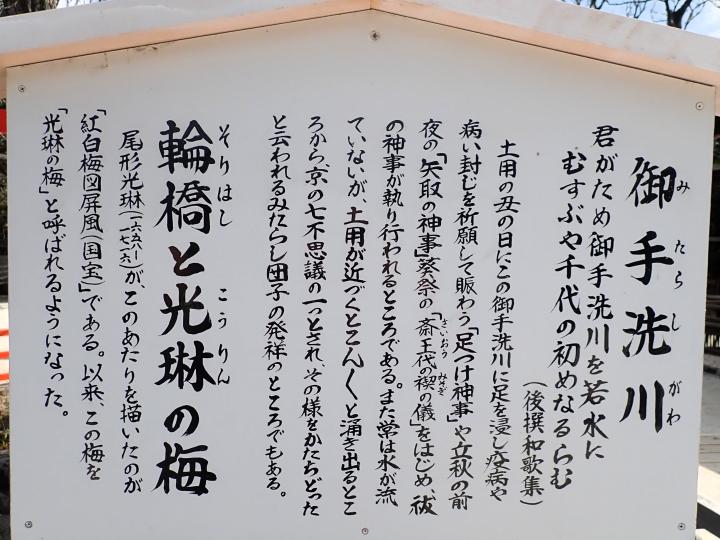 御手洗川
みたらしがわ
君がため御手洗川を若水に
むすぶや千代の初めなるらむ
(後撰和歌集)
土用の丑の日にこの御手洗川に足を浸し疫病や
病い封じを祈願して賑わう「足つけ神事」や立秋の前
夜の「矢取の神事」葵祭の「斎王代の禊の儀」をはじめ、祓
さいおう
みそぎ
の神事が執り行われるところである。また常は水が流
ていないが、土用が近づくとこん〱と涌き出るとこ
ろから、京の七不思議の一つとされ、その様をかたちどった
と云われるみたらし団子の発祥のところでもある。
輪橋と光琳の梅
そりはし
こうりん
尾形光琳(一六五八〡一七一六)が、このあたりを描いたのが
「紅白梅図屏風(国宝)」である。以来、この梅を
「光琳の梅」と呼ばれるようになった。